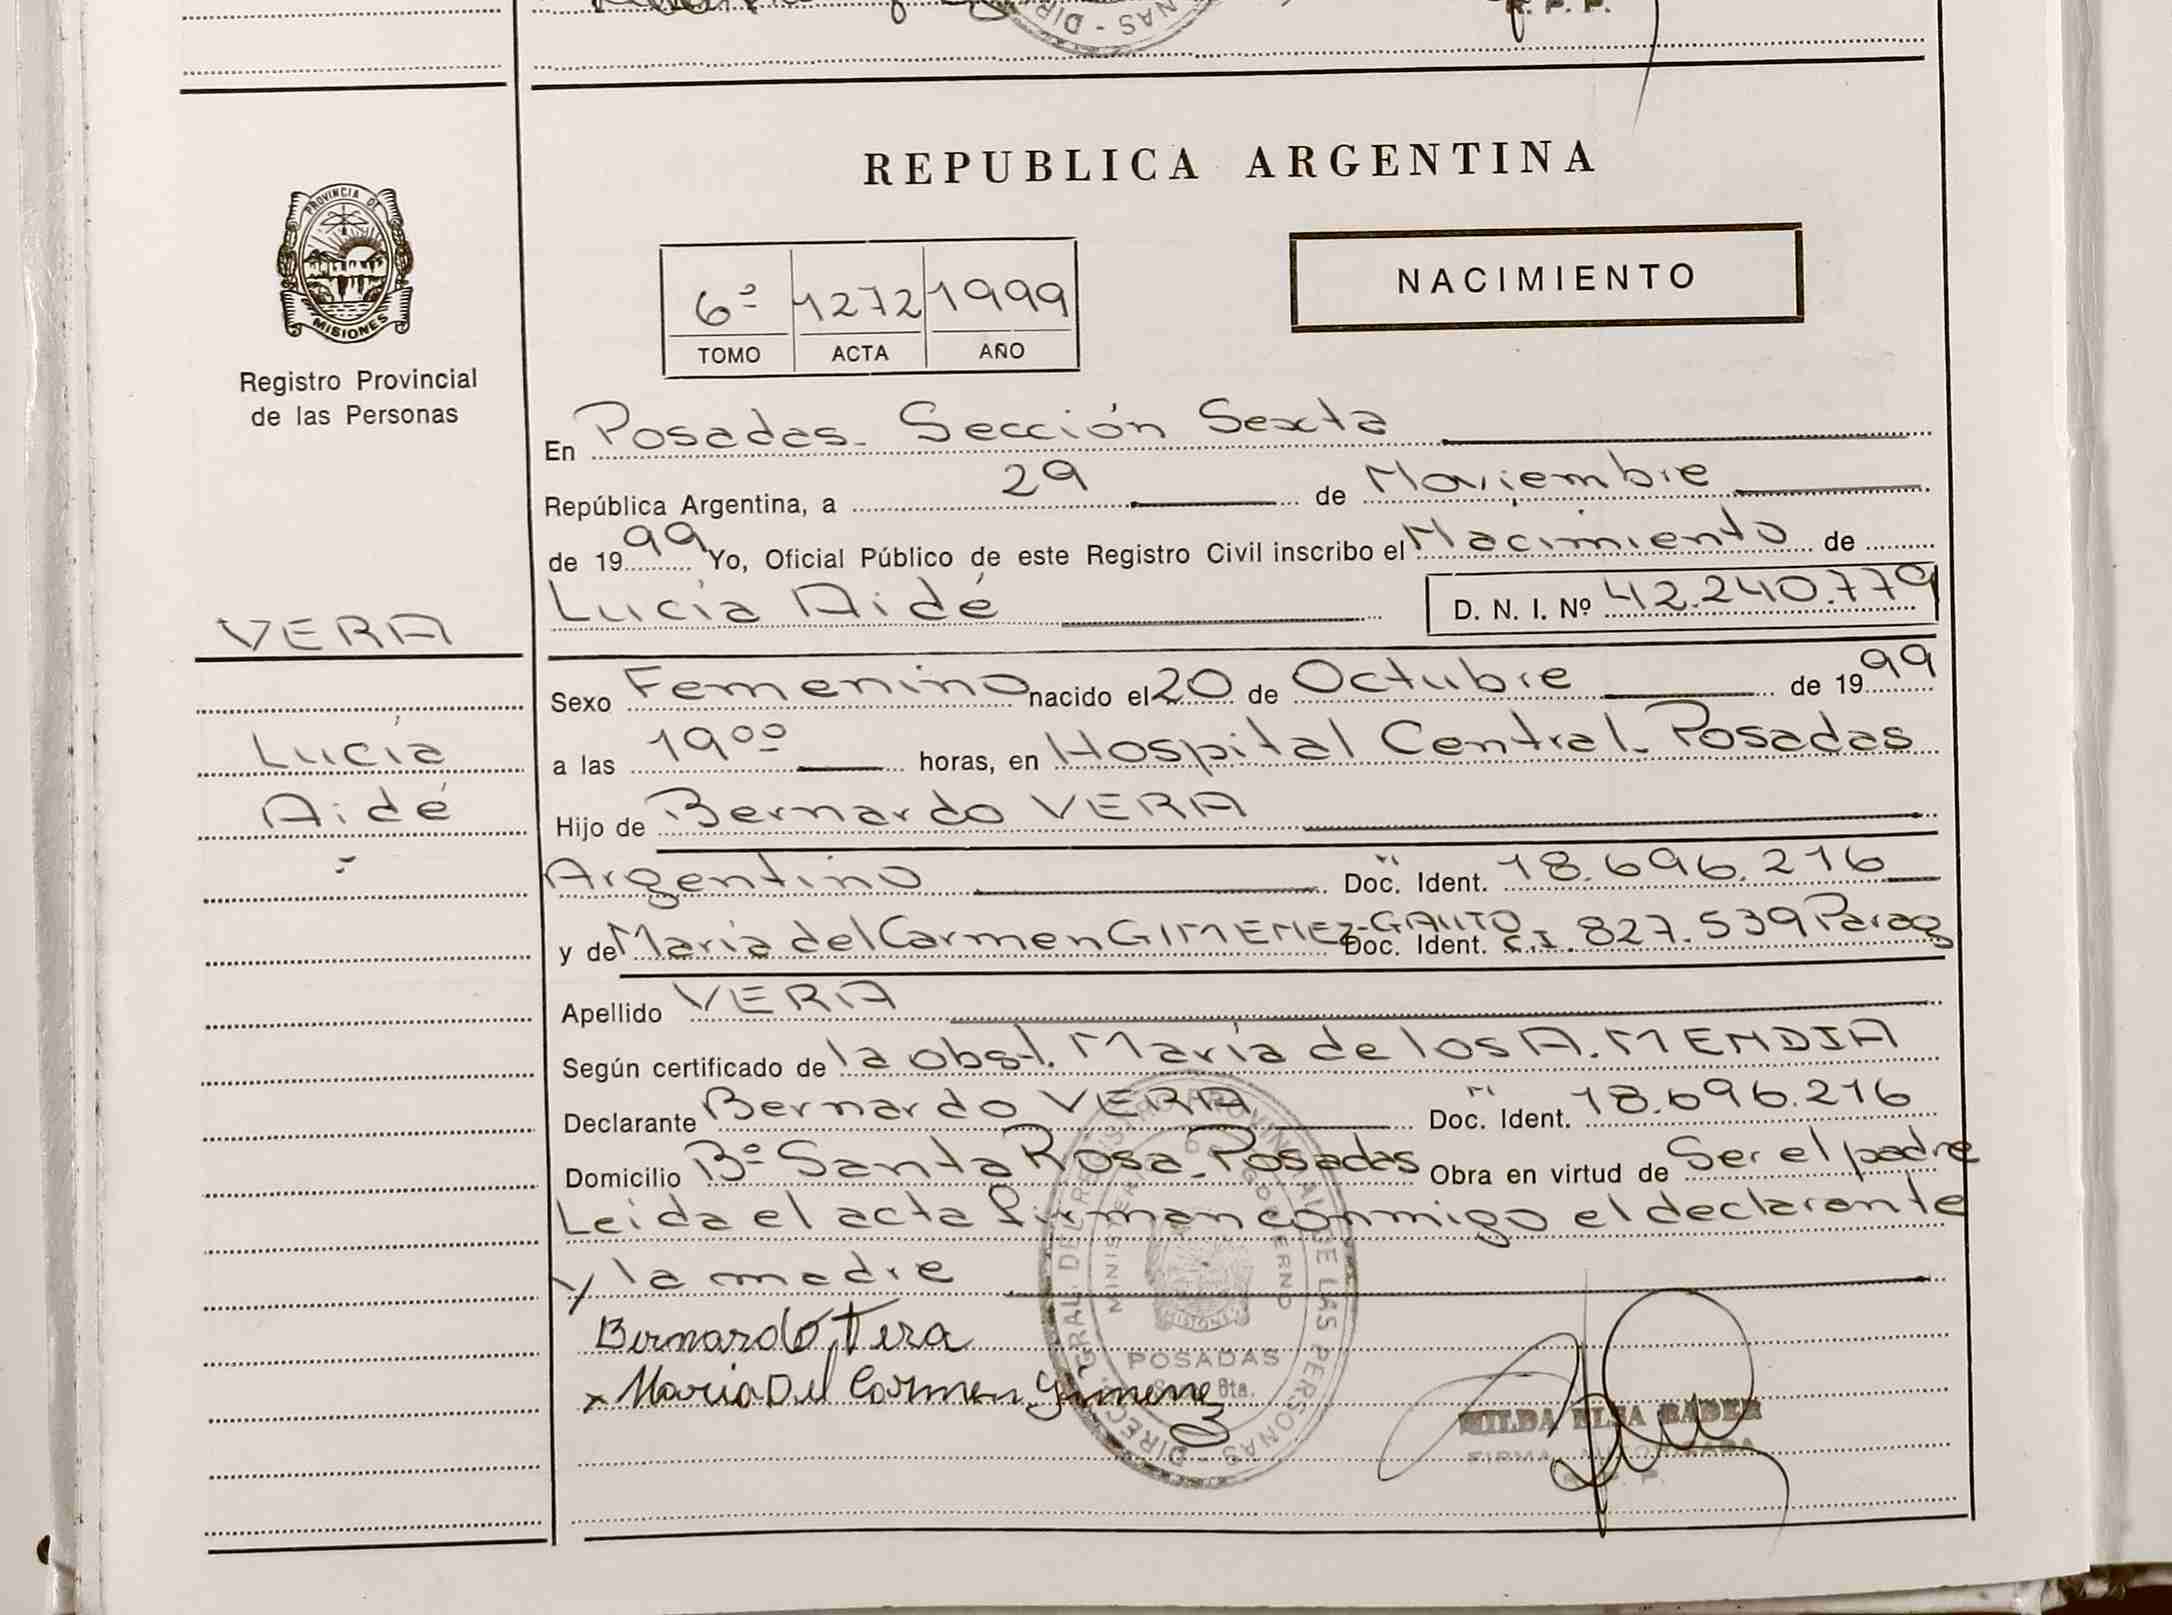 R. P. P.
PROVINCIA DE
MISIONES
Registro Provincial
de las Personas
REPUBLICA ARGENTINA
NACIMIENTO
6º 1272 1999
TOMO ACTA AÑO
En Posadas. Sección Sexta
República Argentina, a 29 de Noviembre
de 1999 Yo, Oficial Público de este Registro Civil inscribo el Nacimiento de
Lucía Aidé D. N. I. Nº 42.240.779
VERA
Lucía
Aidé
Sexo Femenino nacido el 20 de Octubre de 1999
a las 19⁰⁰ horas, en Hospital Central. Posadas
Hijo de Bernardo VERA
Argentino Doc. Ident. 18.696.216
y de María del Carmen GIMENEZ-GAUTO Doc. Ident. C.I. 827.539 Parag
Apellido VERA
Según certificado de la obst. María de los A. MENDIA
Declarante Bernardo VERA Doc. Ident. 18.696.216
Domicilio Bº Santa Rosa. Posadas Obra en virtud de Ser el padre
Leída el acta firman conmigo el declarante
y la madre
Bernardo Vera
x Maria Del Carmen Gimenez
DIRECC. GRAL. DEL REGISTRO PROVINCIAL DE LAS PERSONAS
MINISTERIO GOBIERNO
MISIONES
POSADAS
6ta.
HILDA ELSA BADER
FIRMA AUTORIZADA